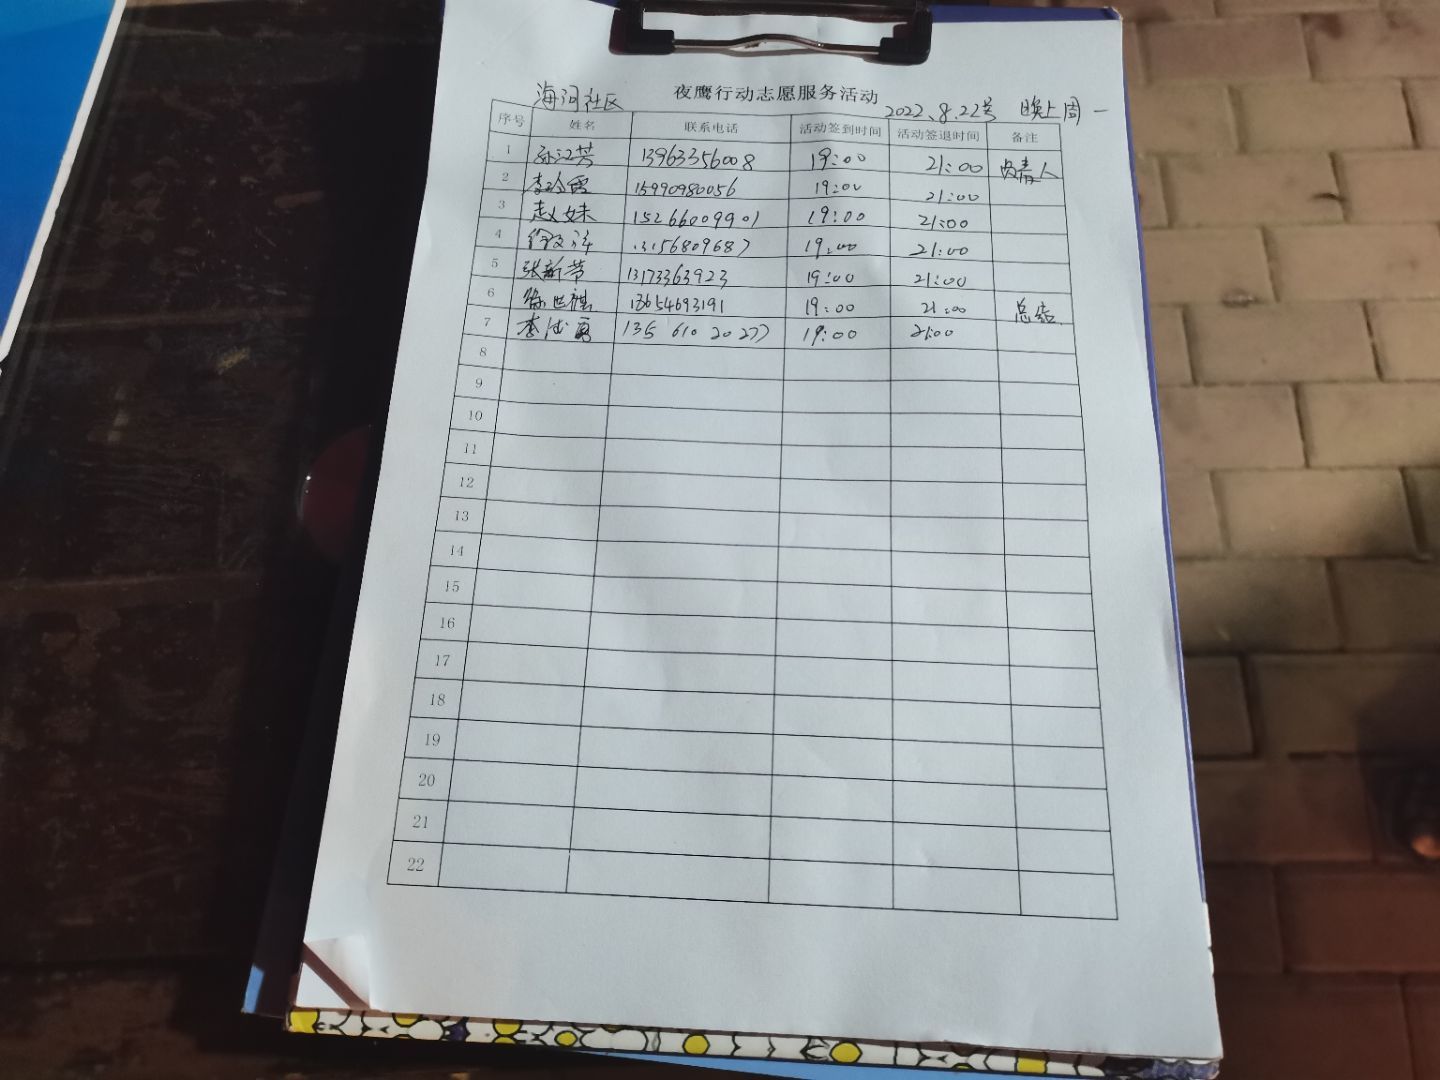 海河社区 夜鹰行动志愿服务活动 2022.8.22号 晚上周一
序号 姓名 联系电话 活动签到时间 活动签退时间 备注
1 孙江芳 13963356008 19:00 21:00 负责人
2 李玲霞 15990980056 19:00 21:00
3 赵妹 15266009901 19:00 21:00
4 19:00 21:00
5 张新芳 13173363923 19:00 21:00
6 13654693191 19:00 21:00 总结
7 李 135 610 20277 19:00 21:00
8
9
10
11
12
13
14
15
16
17
18
19
20
21
22